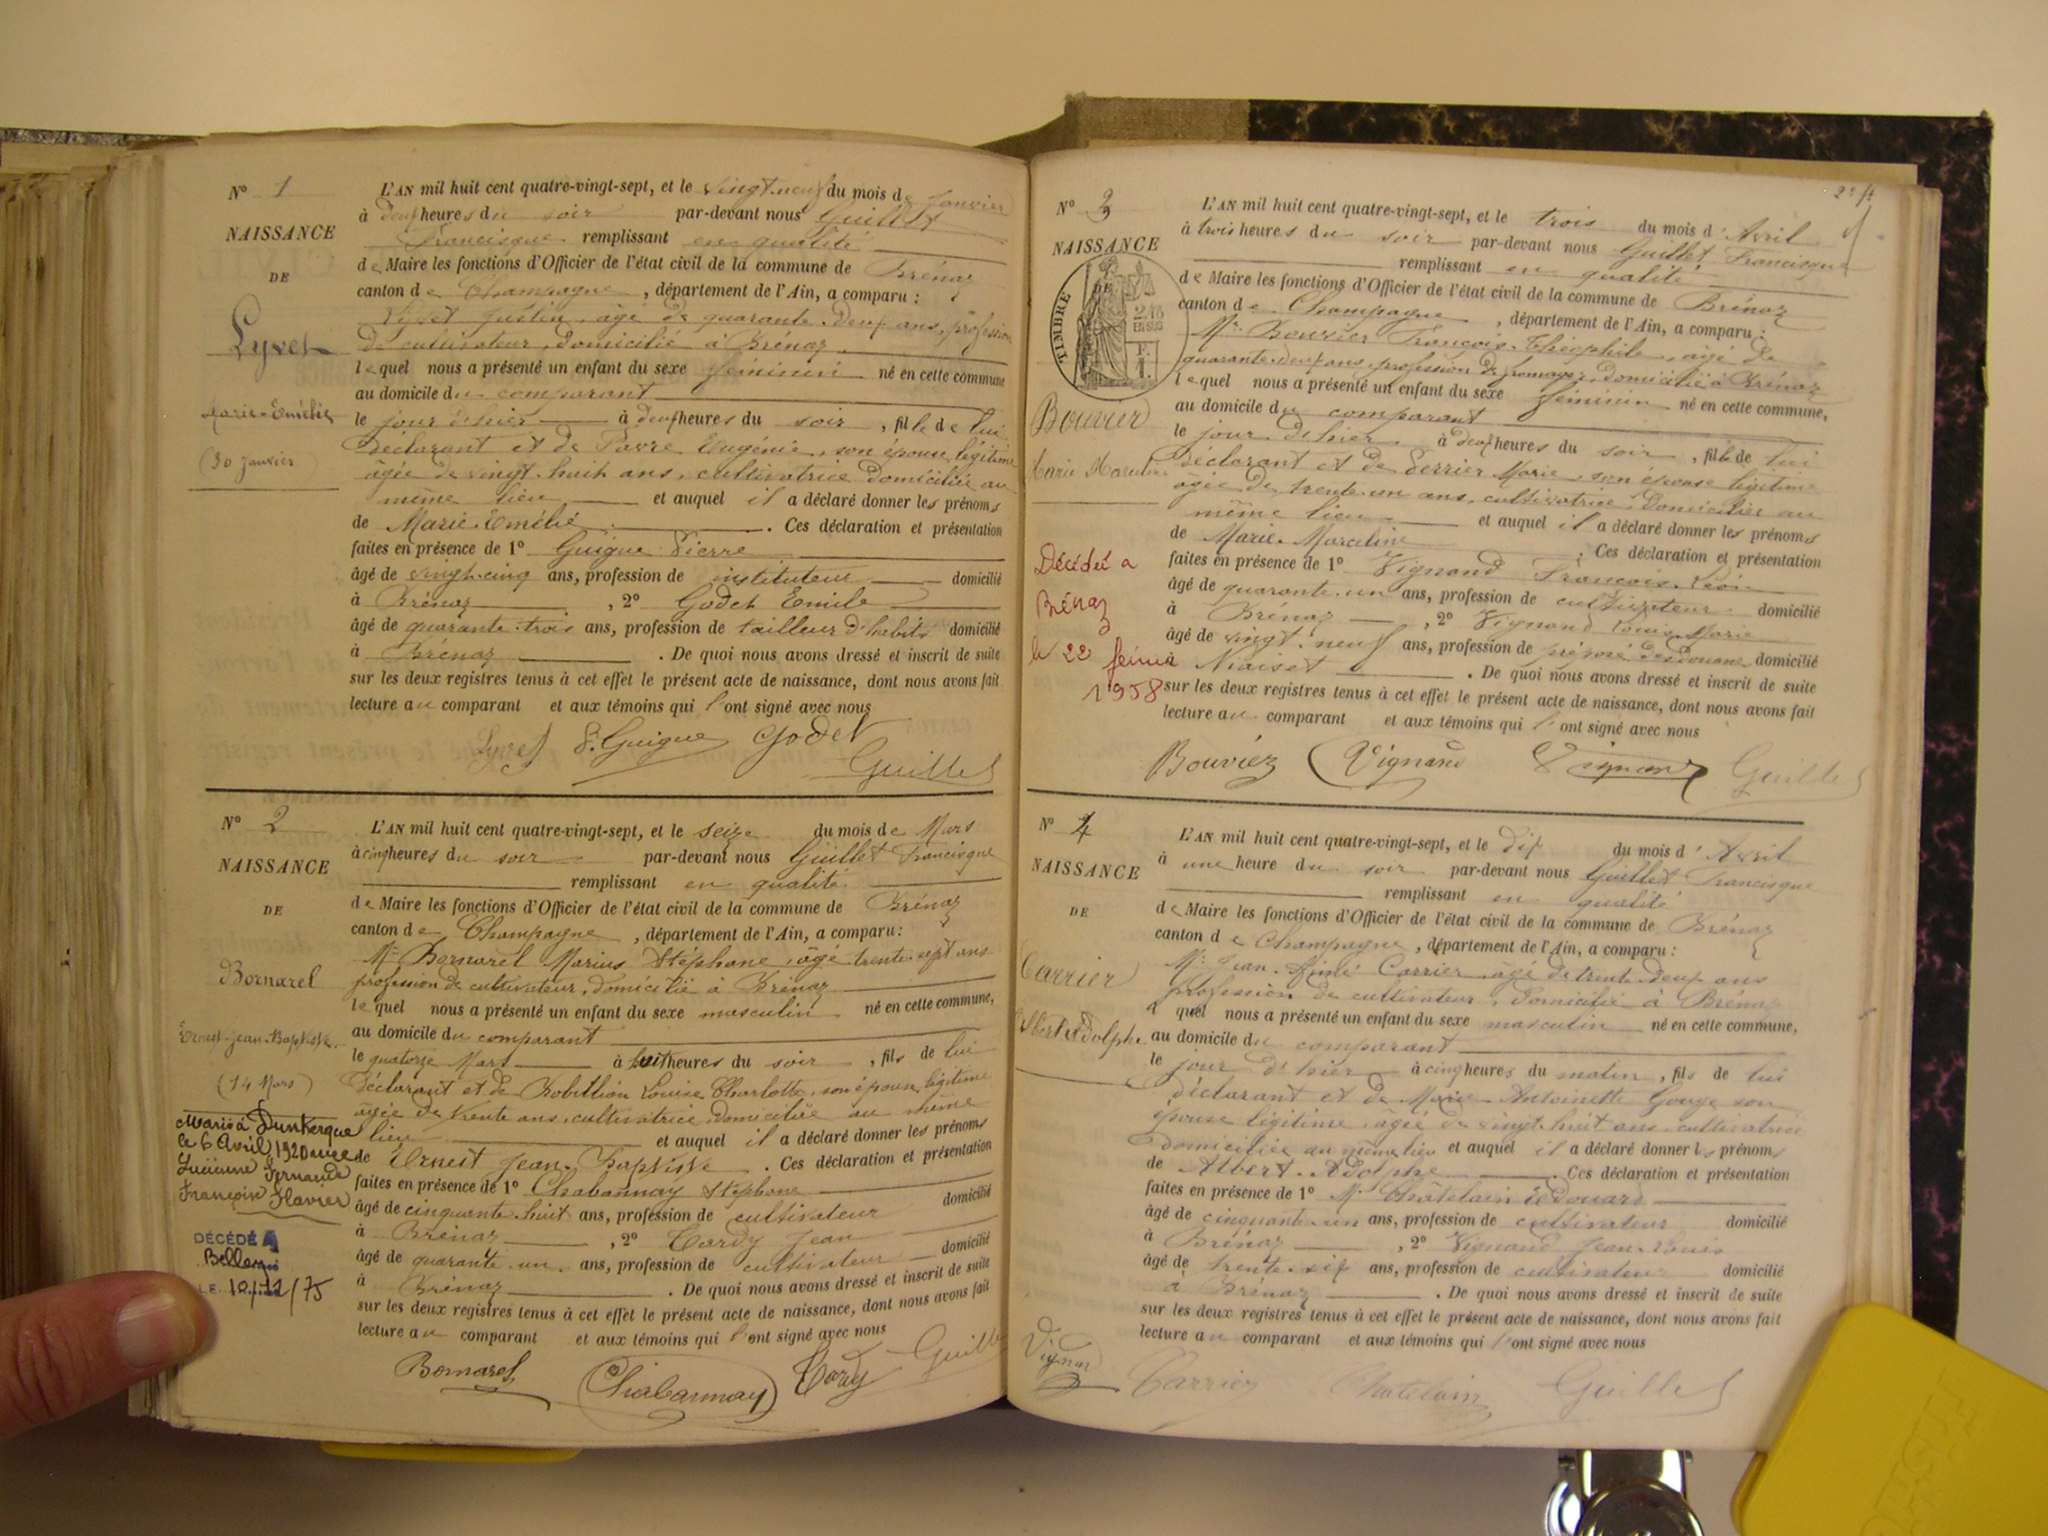 N° 1
NAISSANCE
DE
Lyvet
Marie-Emélie
(30 Janvier)
L'AN mil huit cent quatre-vingt-sept, et le vingt-neuf du mois de Janvier
à deux heures du soir par-devant nous Guillet
Francisque remplissant en qualité
de Maire les fonctions d'Officier de l'état civil de la commune de Brénaz
canton de Champagne, département de l'Ain, a comparu :
Lyvet Justin, âgé de quarante-deux ans, profession
de cultivateur, domicilié à Brénaz
lequel nous a présenté un enfant du sexe féminin né en cette commune
au domicile du comparant
le jour d'hier à deux heures du soir, fille de lui
déclarant et de Eugénie, son épouse légitime
âgée de vingt-huit ans, cultivatrice domiciliée au
même lieu et auquel il a déclaré donner les prénoms
de Marie-Emélie. Ces déclaration et présentation
faites en présence de 1° Guigue Pierre
âgé de vingt-cinq ans, profession de instituteur domicilié
à Brénaz, 2° Godet Emile
âgé de quarante-trois ans, profession de tailleur d'habits domicilié
à Brénaz. De quoi nous avons dressé et inscrit de suite
sur les deux registres tenus à cet effet le présent acte de naissance, dont nous avons fait
lecture au comparant et aux témoins qui l'ont signé avec nous
Lyvet P. Guigue Godet
Guillet
N° 2
NAISSANCE
DE
Bornarel
Ernest-Jean-Baptiste
(14 Mars)
Marié à Dunkerque
le 6 Avril 1920 avec
Fernande
Françoise Flavier
DÉCÉDÉ A
Belley
LE 10/12/75
L'AN mil huit cent quatre-vingt-sept, et le seize du mois de Mars
à cinq heures du soir par-devant nous Guillet Francisque
remplissant en qualité
de Maire les fonctions d'Officier de l'état civil de la commune de Brénaz
canton de Champagne, département de l'Ain, a comparu :
Mr Bornarel Marius Stéphane, âgé trente-sept ans
profession de cultivateur, domicilié à Brénaz
lequel nous a présenté un enfant du sexe masculin né en cette commune,
au domicile du comparant
le quatorze Mars à huit heures du soir, fils de lui
déclarant et de Robillion Louise Charlotte, son épouse légitime
âgée de trente ans, cultivatrice domiciliée au même
lieu et auquel il a déclaré donner les prénoms
de Ernest Jean-Baptiste. Ces déclaration et présentation
faites en présence de 1° Chabannay Stéphane
âgé de cinquante-huit ans, profession de cultivateur domicilié
à Brénaz, 2° Tardy Jean
âgé de quarante-un ans, profession de cultivateur domicilié
à Brénaz. De quoi nous avons dressé et inscrit de suite
sur les deux registres tenus à cet effet le présent acte de naissance, dont nous avons fait
lecture au comparant et aux témoins qui l'ont signé avec nous
Bornarel Chabannay Tardy Guillet
N° 3
NAISSANCE
DE
TIMBRE
EN SUS
Bouvier
Marie Marceline
Décédée à
Brénaz
le 22 février
1958
L'AN mil huit cent quatre-vingt-sept, et le trois du mois d'Avril
à trois heures du soir par-devant nous Guillet Francisque
remplissant en qualité
de Maire les fonctions d'Officier de l'état civil de la commune de Brénaz
canton de Champagne, département de l'Ain, a comparu :
Mr Bouvier François-Théophile, âgé de
quarante-deux ans, profession de fromager, domicilié à Brénaz
lequel nous a présenté un enfant du sexe féminin né en cette commune,
au domicile du comparant
le jour d'hier à deux heures du soir, fille de lui
déclarant et de Perrier Marie, son épouse légitime
âgée de trente-un ans, cultivatrice, domiciliée au
même lieu et auquel il a déclaré donner les prénoms
de Marie-Marceline. Ces déclaration et présentation
faites en présence de 1° Vignand François-Léon
âgé de quarante-un ans, profession de cultivateur domicilié
à Brénaz, 2° Vignand Louis-Marie
âgé de vingt-neuf ans, profession de préposé des douanes domicilié
à. De quoi nous avons dressé et inscrit de suite
sur les deux registres tenus à cet effet le présent acte de naissance, dont nous avons fait
lecture au comparant et aux témoins qui l'ont signé avec nous
Bouvier Vignand Vignand Guillet
N° 4
NAISSANCE
DE
Carrier
Albert Adolphe
L'AN mil huit cent quatre-vingt-sept, et le dix du mois d'Avril
à une heure du soir par-devant nous Guillet Francisque
remplissant en qualité
de Maire les fonctions d'Officier de l'état civil de la commune de Brénaz
canton de Champagne, département de l'Ain, a comparu :
Mr Jean-Aimé Carrier, âgé de trente-deux ans
profession de cultivateur, domicilié à Brénaz
lequel nous a présenté un enfant du sexe masculin né en cette commune,
au domicile du comparant
le jour d'hier à cinq heures du matin, fils de lui
déclarant et de Marie-Antoinette Gouge son
épouse légitime, âgée de vingt-huit ans, cultivatrice
domiciliée au même lieu et auquel il a déclaré donner les prénoms
de Albert-Adolphe. Ces déclaration et présentation
faites en présence de 1° Mr Châtelain Edouard
âgé de cinquante-un ans, profession de cultivateur domicilié
à Brénaz, 2° Vignand Jean-Louis
âgé de trente-six ans, profession de cultivateur domicilié
à Brénaz. De quoi nous avons dressé et inscrit de suite
sur les deux registres tenus à cet effet le présent acte de naissance, dont nous avons fait
lecture au comparant et aux témoins qui l'ont signé avec nous
Vignand Carrier Chatelain Guillet